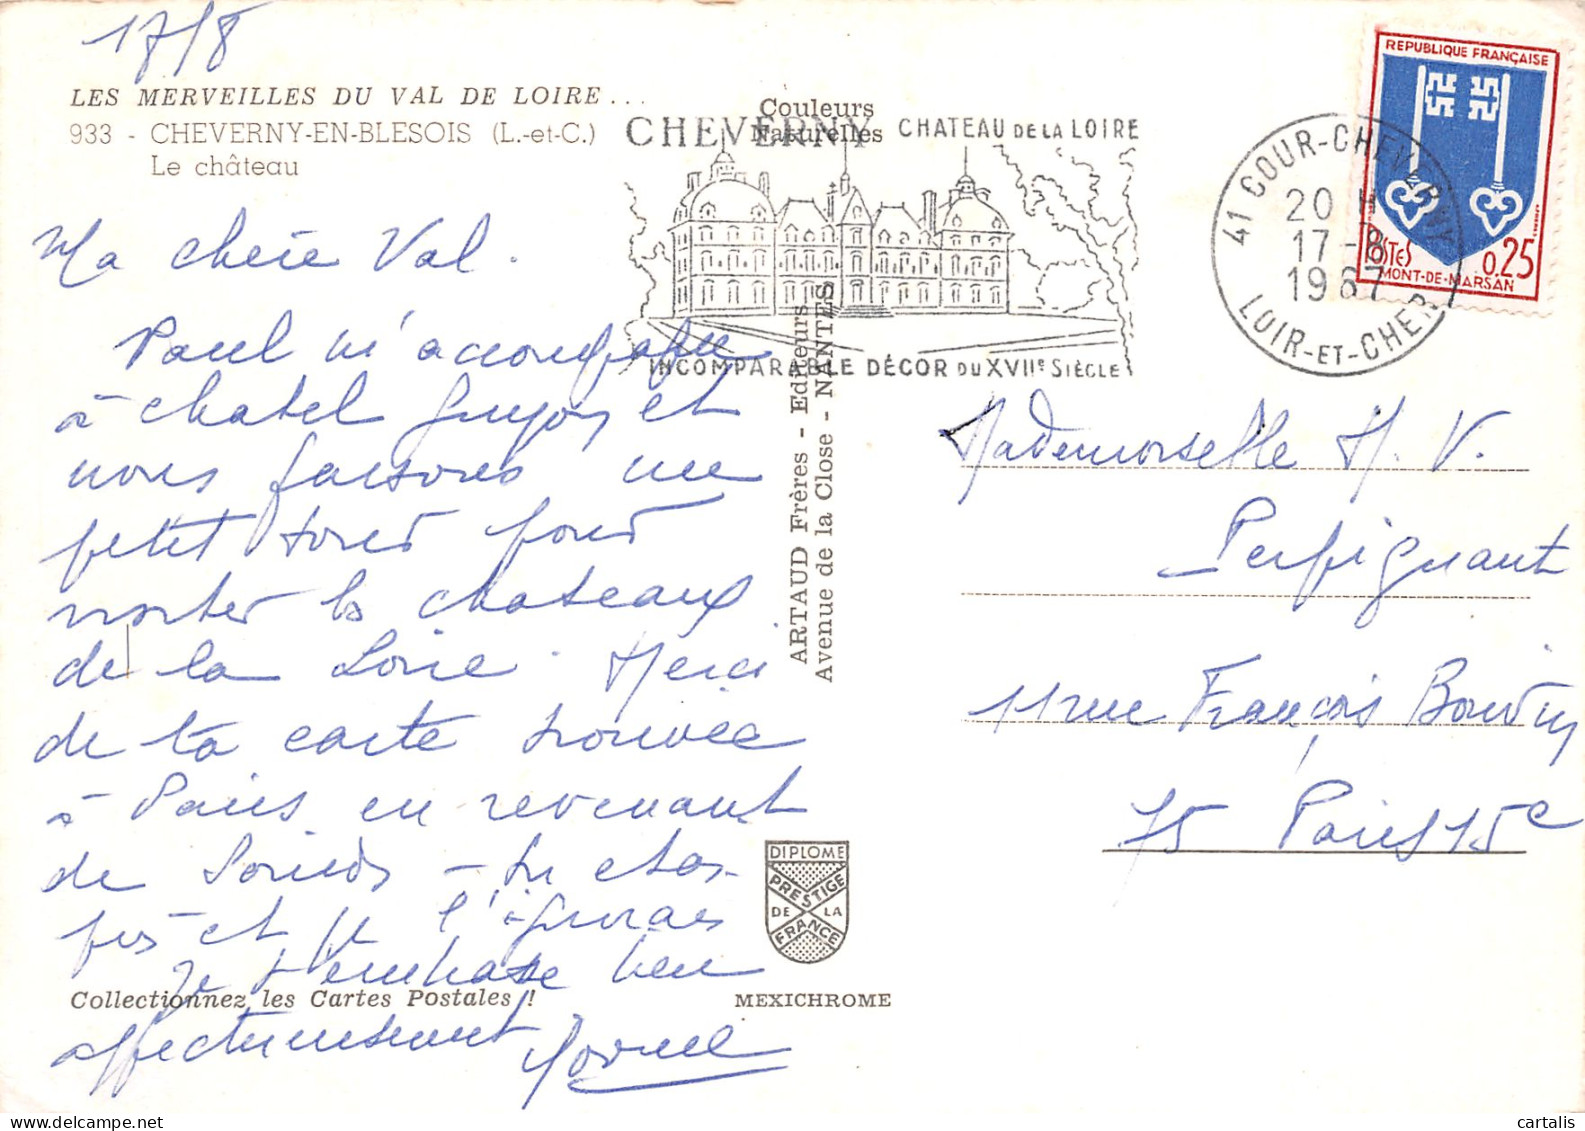 17/8
LES MERVEILLES DU VAL DE LOIRE...
933 - CHEVERNY-EN-BLESOIS (L.-et-C.)
Le château
Ma chère Val.
Paul m'accompagne
à chatel Guyon et
nous faisons une
petit tour pour
visiter les chateaux
de la Loire. Merci
de ta carte trouvée
à Paris en revenant
de
et je l'ignorais
Je t'embrasse bien
affectueusement
Collectionnez les Cartes Postales !
Couleurs
Naturelles
CHEVERNY CHATEAU DE LA LOIRE
INCOMPARABLE DÉCOR DU XVIIe SIÈCLE
ARTAUD Frères - Editeurs
Avenue de la Close - NANTES
DIPLOME
PRESTIGE
DE LA
FRANCE
MEXICHROME
41 COUR-CHEVERNY
20 H
17 -8
1967
LOIR-ET-CHER
REPUBLIQUE FRANÇAISE
POSTES
0,25
MONT-DE-MARSAN
Mademoiselle M. V.
Perpignant
11 rue François Bonvin
75 Paris 15e
cartalis